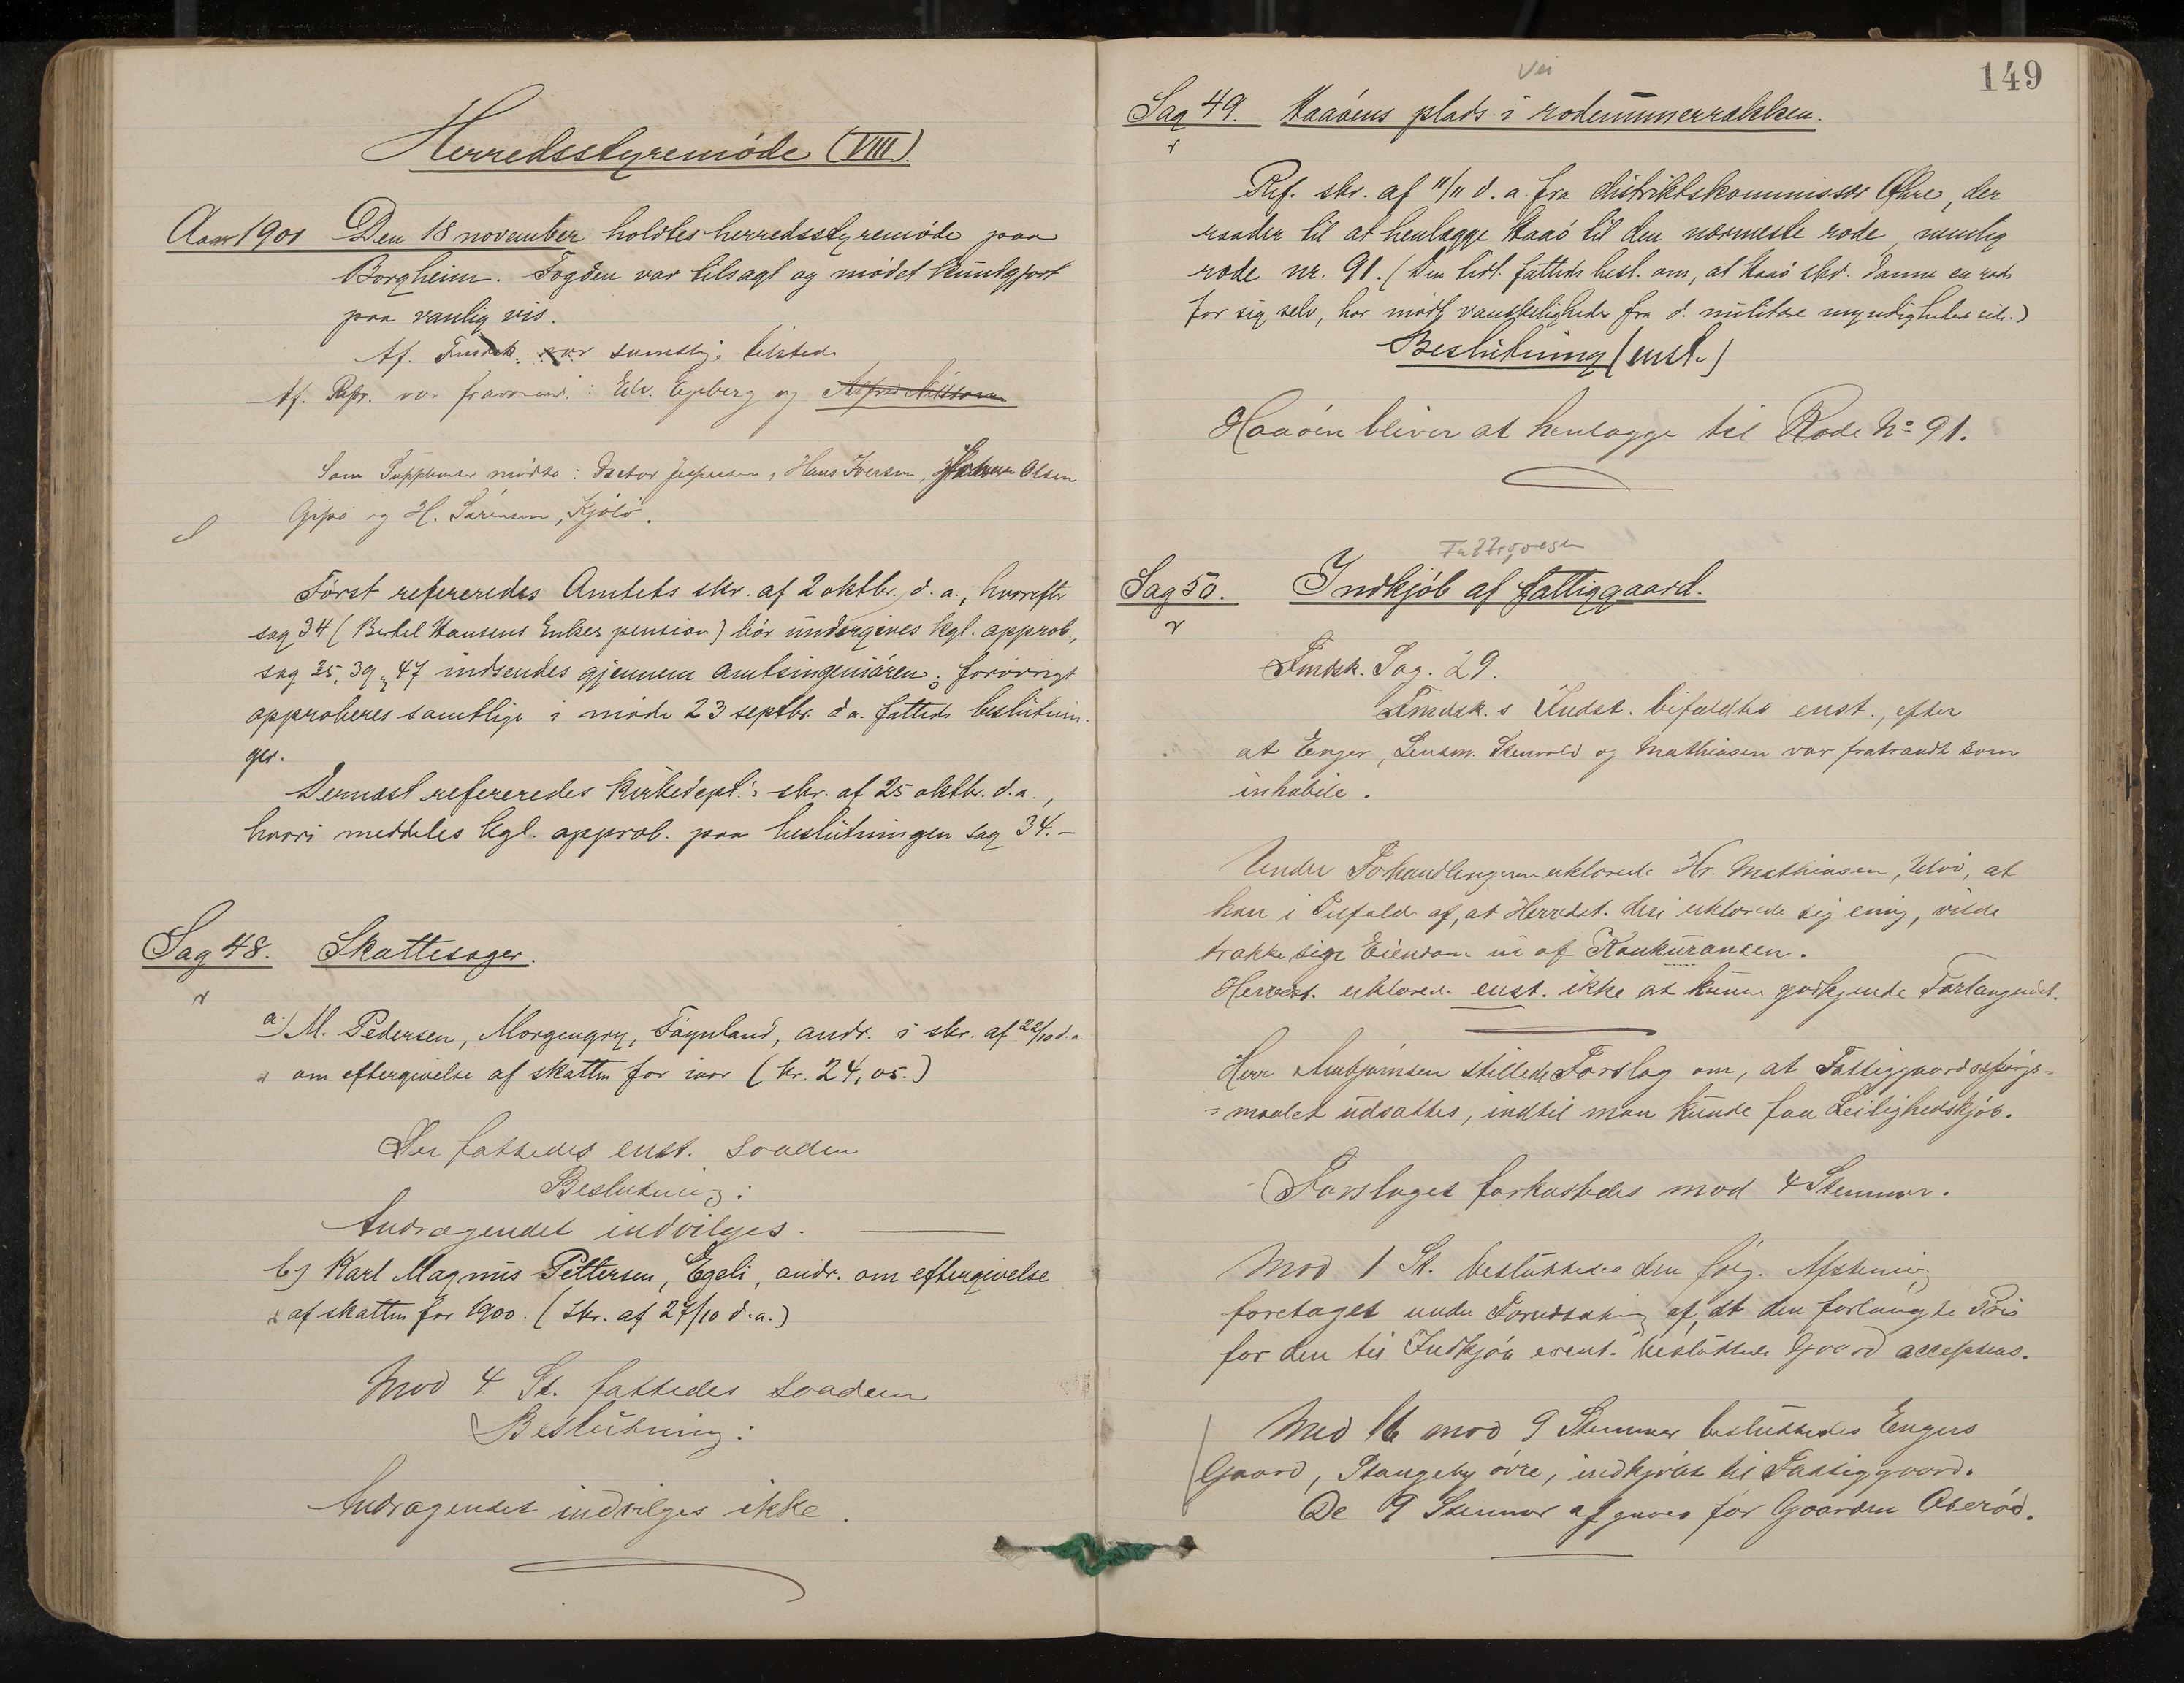 Herredsstyremöde (VIII).
Aar 1901 Den 18 november holdtes herredsstyremöde paa
Borgheim. Fogden var tilsagt og mödet kundgjort
paa vanlig vis.
Af. Fmdsk. var samtlige tilstede
Af. Repr. var fraværend. : Edv. Egeberg og
Som Supplianter mödte : Doctor Jespersen, Hans Iversen, Olsen
Gipö og H. Sörensen, Kjölö.
Först refereredes Amtets skr. af 2 oktbr. d. a., hvorefter
sag 34 ( Bertel Hansens Enkes pension) bör undergives kgl. approb.,
sag 25, 39 og 47 indsendes gjennem amtsingeniören; forövrigt
approberes samtlige i möde 23 septbr. d a. fattede beslutnin-
ger.
Dernæst refereredes Kirkedept.s skr. af 25 oktbr. d. a.,
hvori meddeles kgl. approb. paa beslutningen sag 34. –
Sag 48. Skattesager.
a.) M. Pedersen, Morgengry, Föynland, andr. i skr. af 22/10 d. a.
om eftergivelse af skatten for iaar ( kr. 24,05.)
Der fattedes enst. saadan
Beslutning :
Andragendet indvilges.
b) Karl Magnus Pettersen, Egeli, andr. om eftergivelse
af skatten for 1900. ( Skr. af 27/10 d. a.)
Mod 4 St. fattedes saadan
Beslutning :
Andragendet indvilges ikke.
149
Vei
Sag 49. Haaöens plads i rodenummerrækken.
Ref. skr. af 11/11 d. a. fra distriktskommissær Öhre, der
raader til at henlægge Haaö til den nærmeste rode, nemlig
rode nr. 91. ( Den tidl. fattede besl. om, at Haaö skd. danne en rode
for sig selv, har mödt vanskeligheder fra d. militære myndigheders side.)
Beslutning (enst.)
Haaöen bliver at henlægge til Rode No 91.
Fattigvesen
Sag 50. Indkjöb af fattiggaard.
Fmdsk. Sag. 29.
Fmdsk.s Indst. bifaldtes enst., efter
at Enger, Lensm. Stenvold og Mathiasen var fratraadt som
inhabile.
Under Forhandlingerne erklærede Hr. Mathiasen, Ulvö, at
han i Tilfælde af, at Herredst. deri erklærede sig enig, vilde
trække sin Eiendom ud af Konkurancen.
Herredst. erklærede enst. ikke at kunne godkjende Forlangendet.
Herr Anbjörnsen stillede Forslag om, at Fattiggaardsspörgs=
=maalet udsattes, indtil man kunde faa Leilighedskjöb.
Forslaget forkastedes mod 4 Stemmer.
Mod 1 St. besluttedes den fölg. Afstemning
foretaget under Forudsætning af, at den forlangte Pris
for den til Indkjöb event. besluttede Gaard accepteres.
Med 16 mod 9 Stemmer besluttedes Engers
Gaard, Stangeby övre, indkjöbt til Fattiggaard.
De 9 Stemmer afgaves for Gaarden Oseröd.